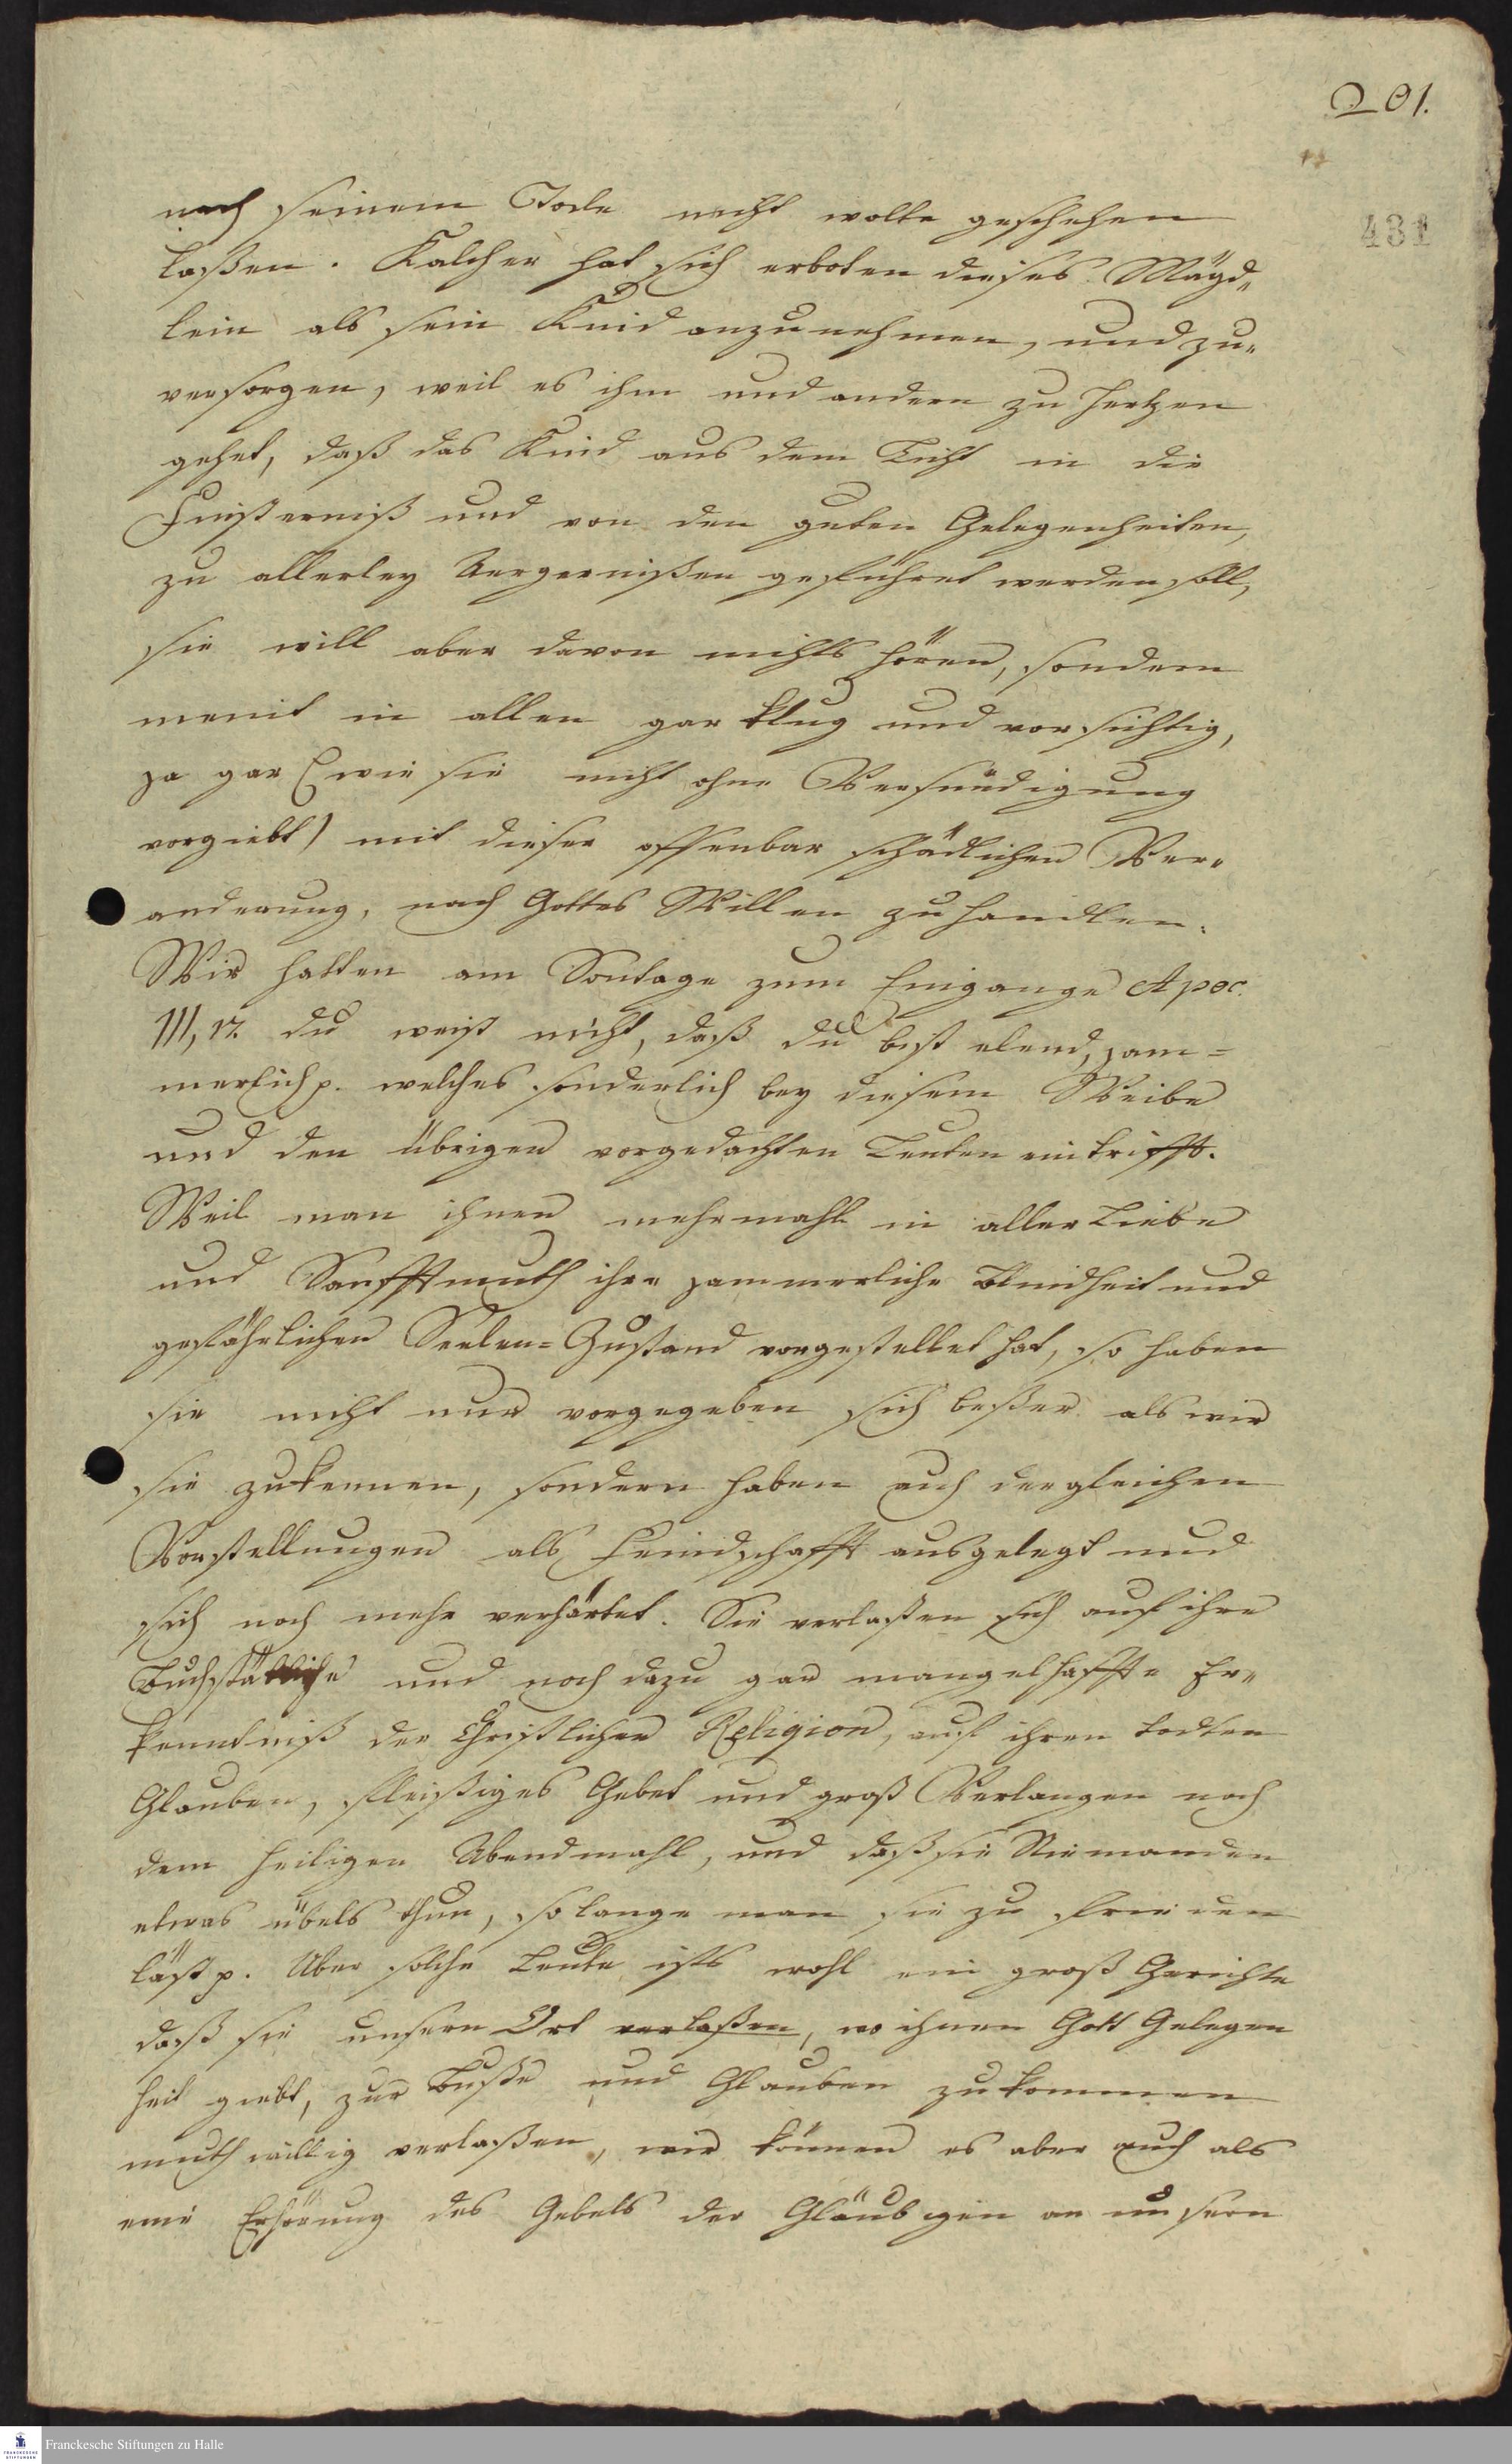 201.
431
nach seinem Tode nicht wolte geschehen
laßen. Kalcher hat sich erboten dieses Mägd„
lein als sein Kind anzunehmen, und zu„
versorgen, weil es ihm und andern zu Hertzen
gehet, daß das Kind aus dem Licht in die
Finsterniß und von den guten Gelegenheiten,
zu allerley Aergernißen geführet werden soll,
sie will aber davon nichts hören, sondern
meint in allen gar klug und vorsichtig,
ja gar (wie sie nicht ohne Versündigung
vorgiebt) mit dieser offenbar schädlichen Ver„
anderung, nach Gottes Willen zu handlen.
Wir hatten am Sontage zum Eingange Apoc.
III, 17. du weist nicht, daß du bist elend, jam=
merlich p. welches sonderlich bey diesem Weibe
und den übrigen vorgedachten Leuten eintrifft.
Weil man ihnen mehrmahl in aller Liebe
und Sanfftmuth ihre jammerliche Blindheit und
gefährlichen Seelen=Zustand vorgestellet hat, so haben
sie nicht nur vorgegeben sich beßer als wir
sie zu kennen, sondern haben auch dergleichen
Vorstellungen als Feindschafft ausgelegt und
sich noch mehr verhärtet. Sie verlaßen sich auf ihre
Buchstäbliche und noch dazu gar mangelhaffte Er„
kenntniß der Christlichen Religion, auf ihren todten
Glauben, fleißiges Gebet und groß Verlangen nach
dem heiligen Abendmahl, und daß sie Niemanden
etwas übels thun, so lange man sie zu frieden
läst p. Uber solche Leute ists wohl ein groß Gerichte
daß sie unsern Ort verlaßen, wo ihnen Gott Gelegen
heit giebt, zur Buße und Glauben zu kommen
muthwillig verlaßen, wir können es aber auch als
eine Erhörung des Gebets der Gläubigen an unsern
Franckesche Stiftungen zu Halle